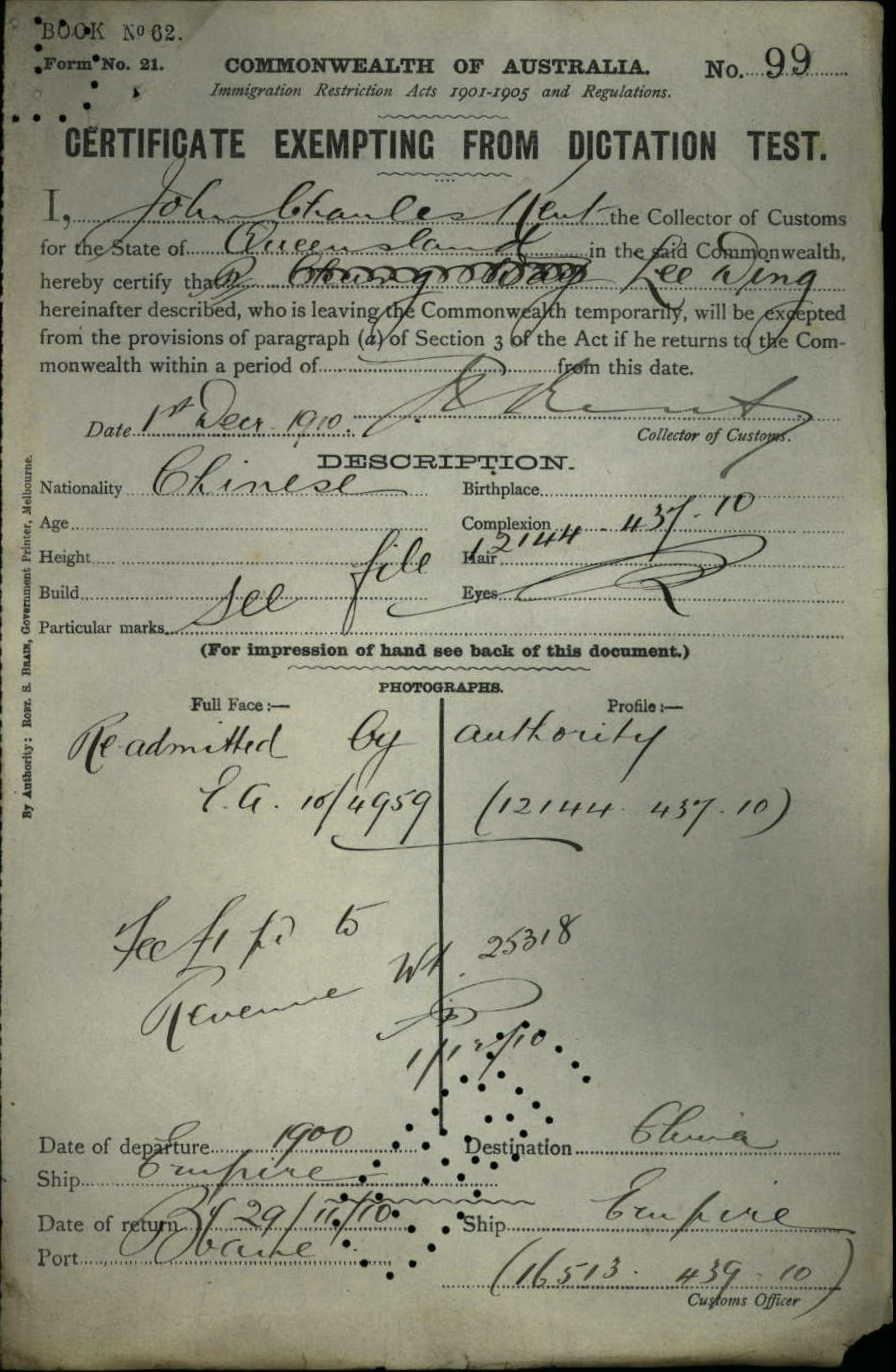 BOOK No 62.
Form No. 21.
COMMONWEALTH OF AUSTRALIA.
No. 99
Immigration Restriction Acts 1901-1905 and Regulations.
CERTIFICATE EXEMPTING FROM DICTATION TEST.
I, John Charles Kent the Collector of Customs
for the State of Queensland in the said Commonwealth,
hereby certify that Lee Wing
hereinafter described, who is leaving the Commonwealth temporarily, will be excepted
from the provisions of paragraph (a) of Section 3 of the Act if he returns to the Com-
monwealth within a period of from this date.
Date 1st Decr. 1910. Kent
Collector of Customs.
DESCRIPTION.
Nationality Chinese Birthplace
Age Complexion 12144 . 437 . 10
Height Hair
Build see file Eyes
Particular marks
(For impression of hand see back of this document.)
PHOTOGRAPHS.
Full Face :— Profile :—
Re-admitted by authority
E.A. 10/4959 (12144 . 437 . 10)
Fee £1 pd to
Revenue 25318
1/12/10
Date of departure 1900 Destination China
Ship Empire
Date of return 29/11/10 Ship Empire
Port Bbane
(16513 . 439 . 10)
Customs Officer
By Authority: ROBT. S. BRAIN, Government Printer, Melbourne.